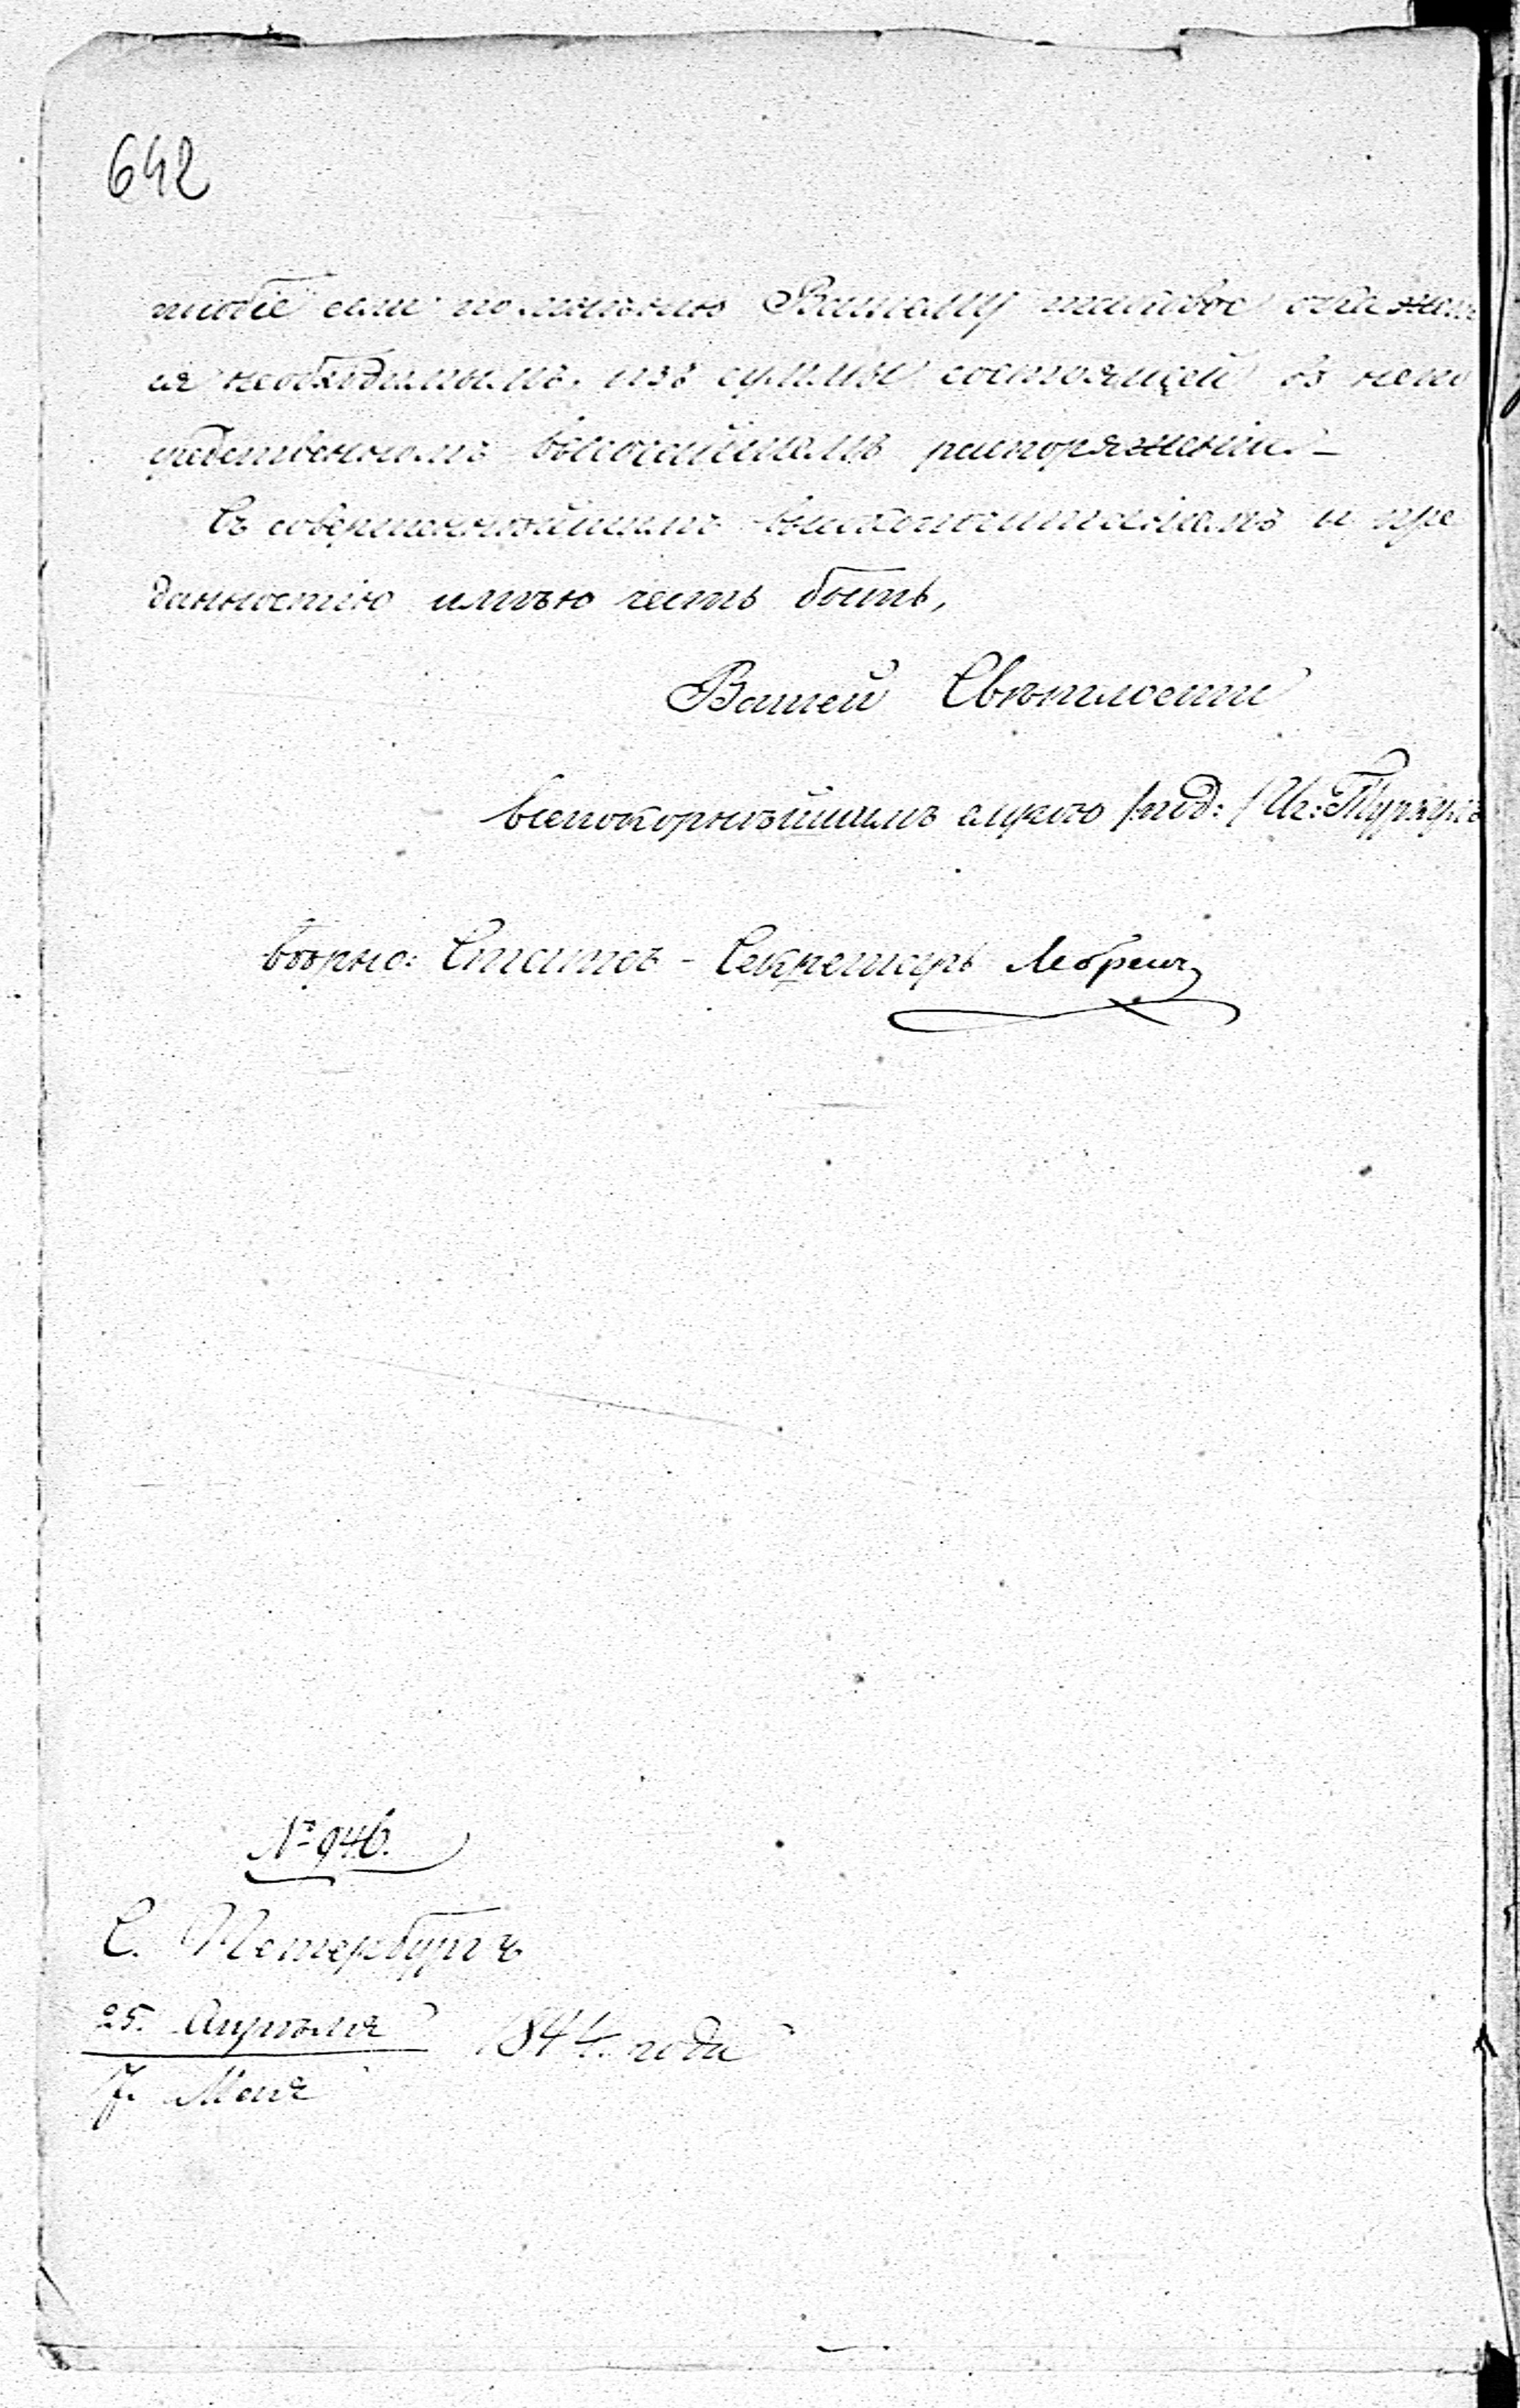 642
собіе если по мнѣнію Вашему таковое окажет
ся необходимымъ, изъ суммы состоящей въ непо
средственномъ высочайшемъ распоряженіи. –
Съ совершеннѣйшимъ высокопочитаніемъ и пре
данностію имѣю честь быть,
Вашей Свѣтлости
всепокорнѣйшимъ слугою /под:/ Иг: Туркулъ
вѣрно: Статсъ - Секретарь Лебрен
№ 946.
С. Петербургъ
25. Апрѣля
7. Мая
1844. года